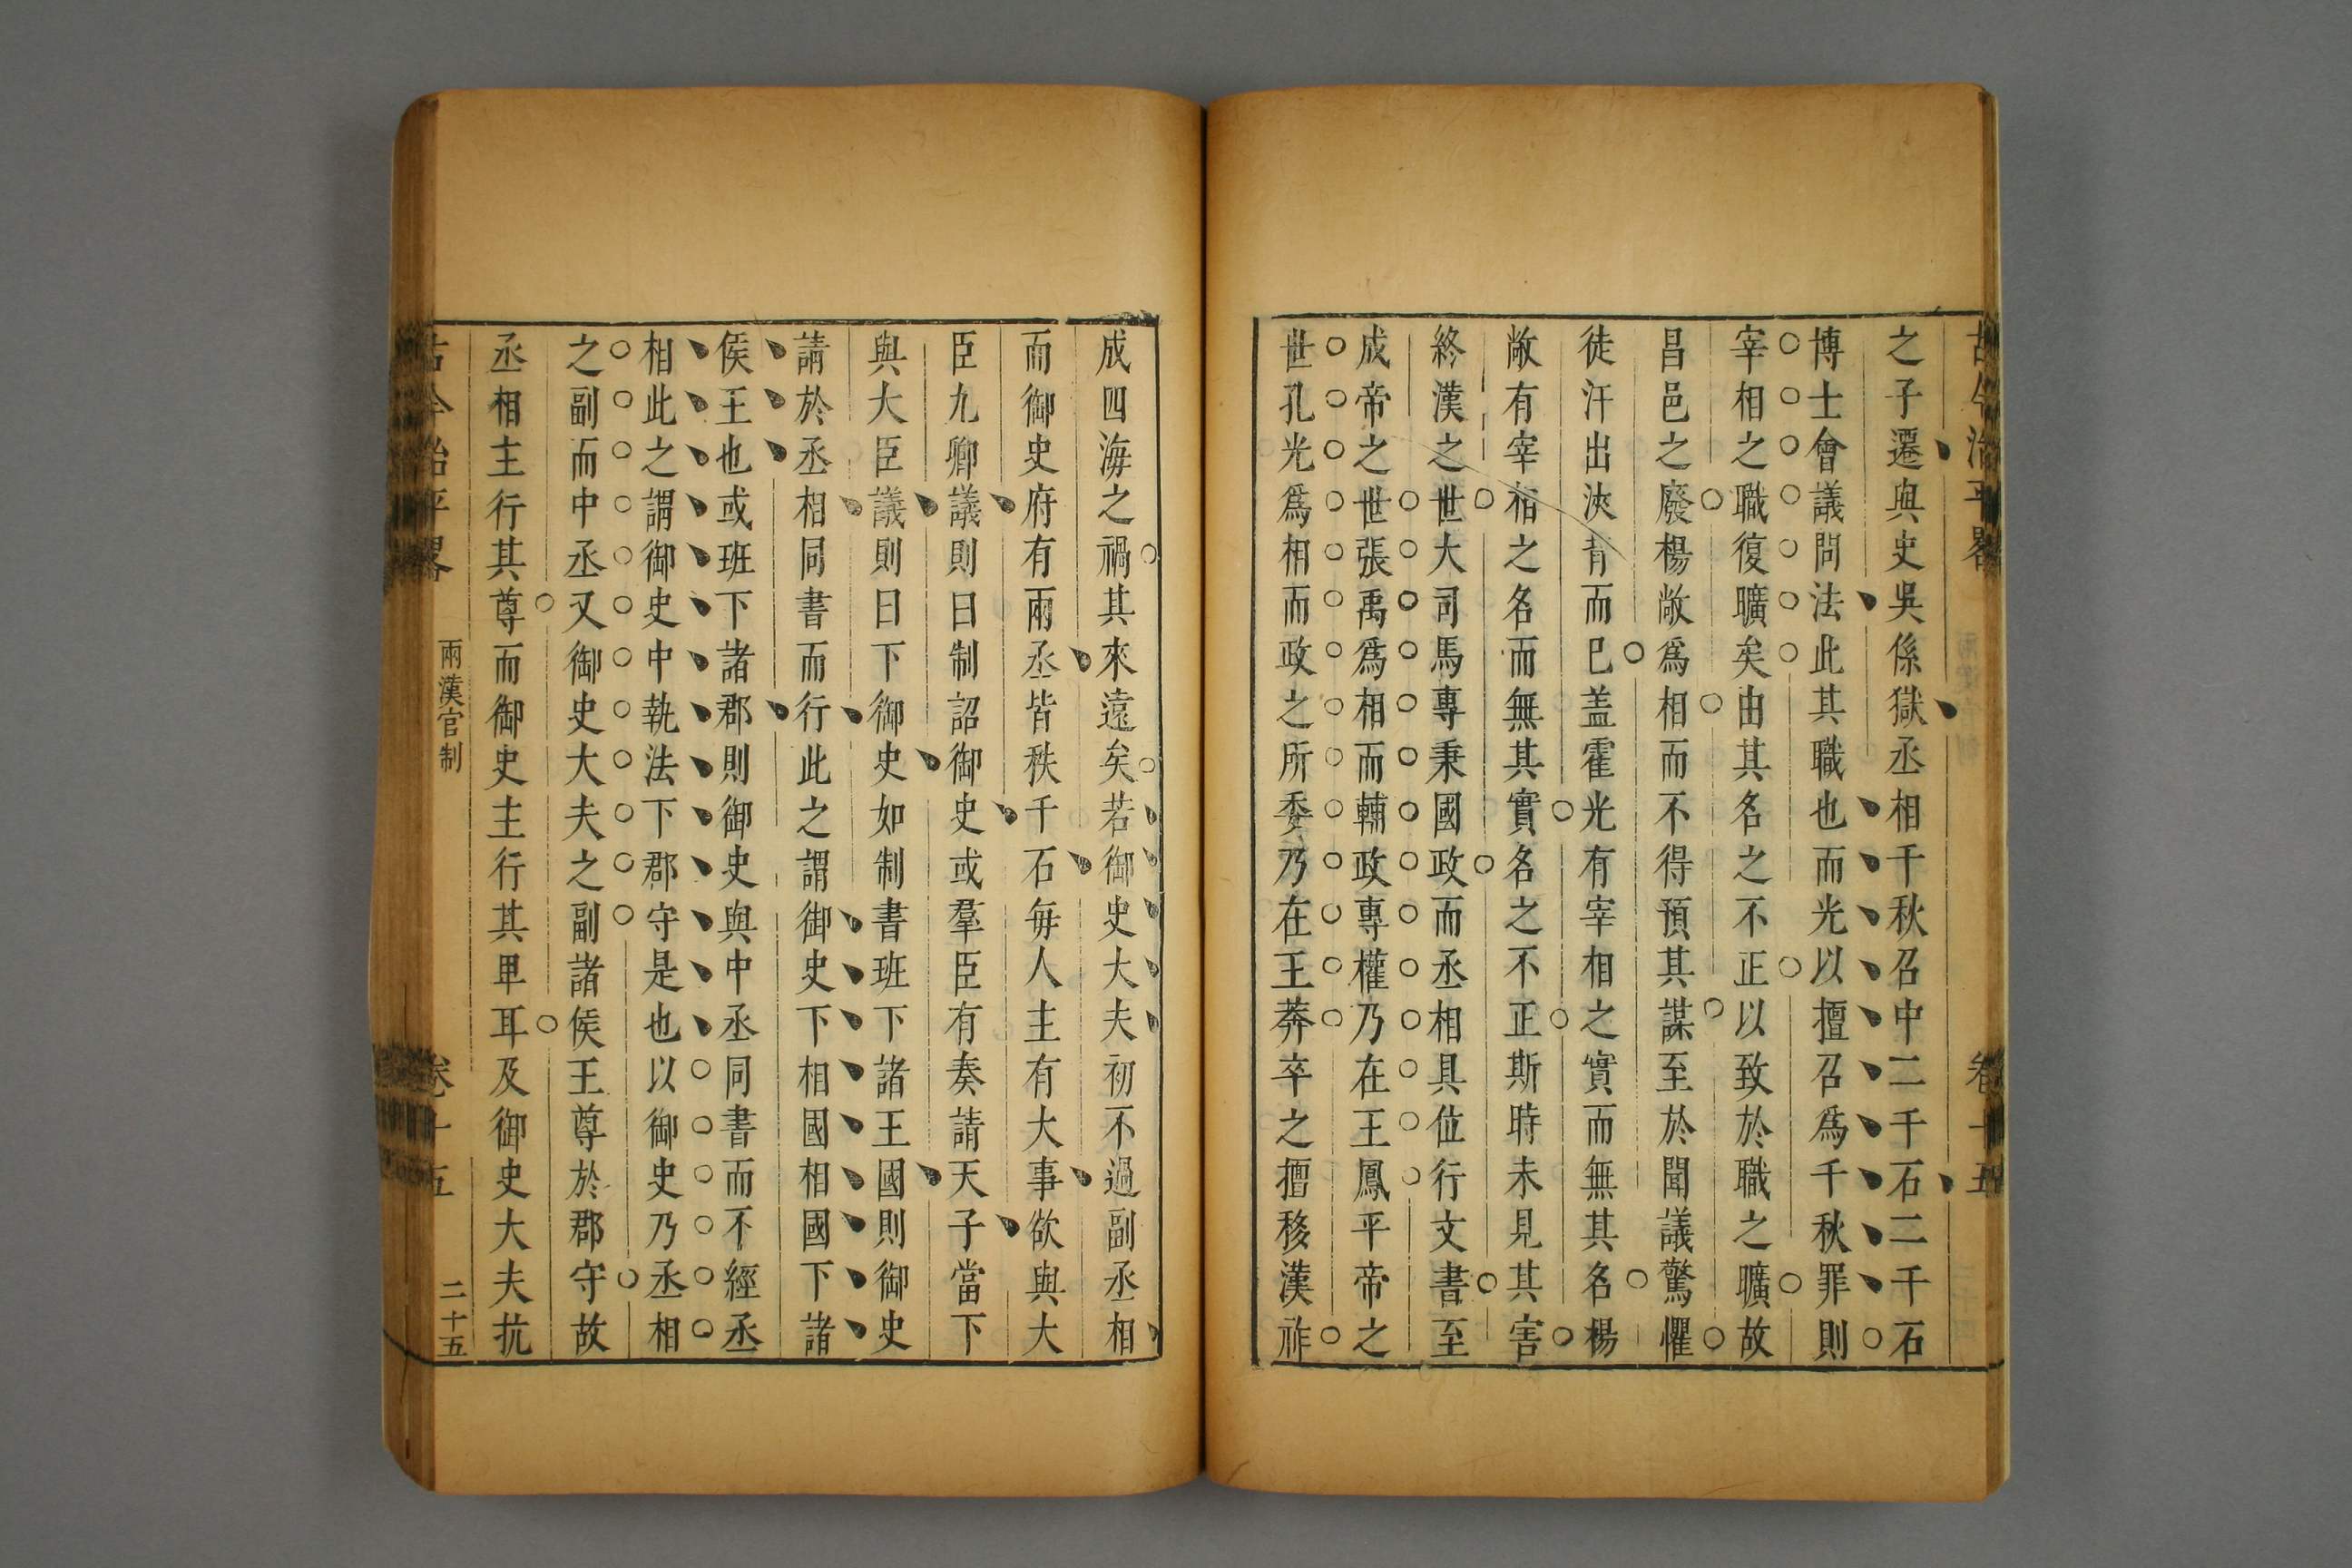 之子遷與史吳係獄丞相千秋召中二千石二千石
博士會議問法此其職也而光以擅召爲千秋罪則
宰相之職復曠矣由其名之不正以致於職之曠故
昌邑之廢楊敞爲相而不得預其謀至於聞議驚懼
徒汗出浹背而巳盖霍光有宰相之實而無其名楊
敞有宰相之名而無其實名之不正斯時未見其害
終漢之世大司馬專秉國政而丞相具位行文書至
成帝之世張禹爲相而輔政專權乃在王鳳平帝之
世孔光爲相而政之所委乃在王莽卒之擅移漢祚
成四海之禍其來遠矣若御史大夫初不過副丞相
而御史府有兩丞皆秩千石每人主有大事欲與大
臣九卿議則曰制詔御史或羣臣有奏請天子當下
與大臣議則曰下御史如制書班下諸王國則御史
請於丞相同書而行此之謂御史下相國相國下諸
侯王也或班下諸郡則御史與中丞同書而不經丞
相此之謂御史中執法下郡守是也以御史乃丞相
之副而中丞又御史大夫之副諸侯王尊於郡守故
丞相主行其尊而御史主行其卑耳及御史大夫抗
古今治平畧 兩漢官制 卷十五 二十五